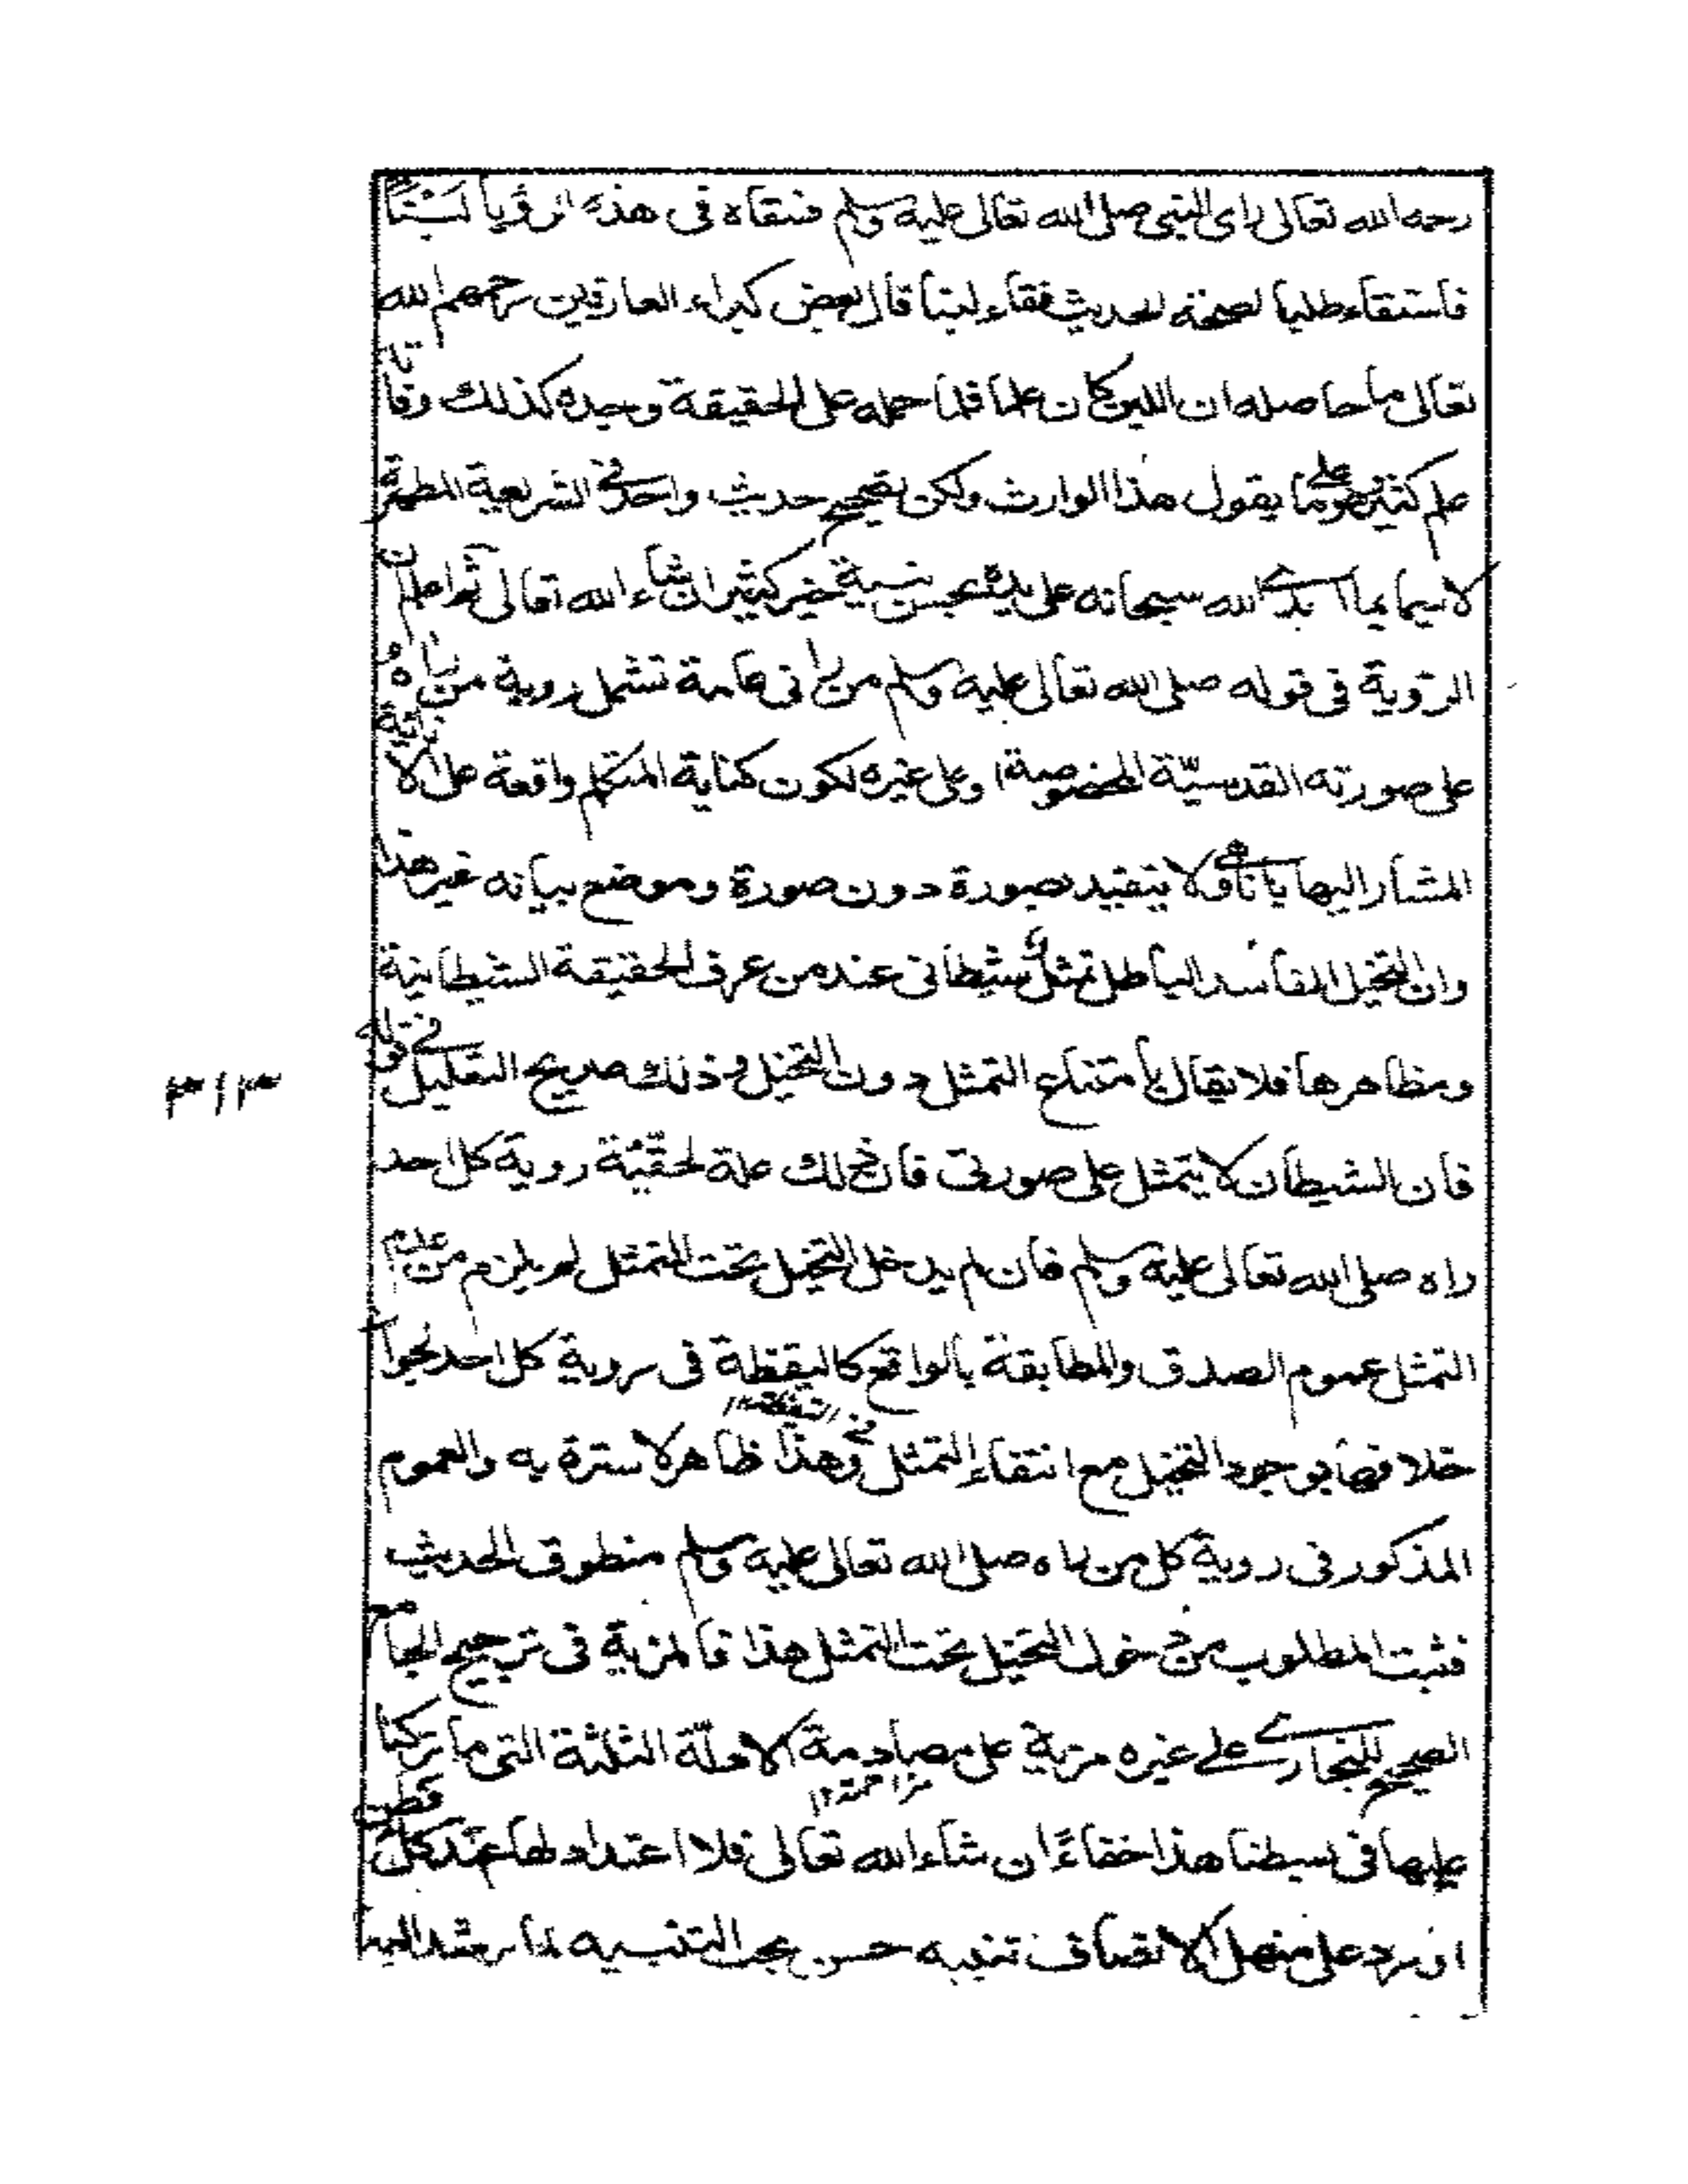 رحمه الله تعالى راى النبى صلى الله تعالى عليه وسلم فسقاه فى هذه الرؤيا لبنًا
فاستقاء طلبا لصحة الحديث فقاء لبنا قال بعض كبراء العارفين رحمهم الله
تعالى ما حاصله ان اللبن كان علما فلما حمله على الحقيقة وجده كذلك وفاته
علم كثير هو على ما يقول هذا الوارث ولكن تصحيح حديث واحد فى الشريعة المطهرة
لا سيما بما ابدى الله سبحانه على يده بحسن نسبة خير كثير ان شاء الله تعالى ثم اعلم ان
الرؤية فى قوله صلى الله تعالى عليه وسلم من رانى عامة تشمل روية من راه
على صورته القدسيّة المخصوصة وعلى غيره لكون كناية المتكلم واقعة على الانائية
المشار اليها بانا ولا يتقيد بصورة دون صورة وموضع بيانه غير هذا
وان التخيل الفاسد الباطل تمثل شيطانى عند من عرف الحقيقة الشيطانية
ومظاهرها فلا يقال بامتناع التمثل دون التخيل وذلك صريح التعليل فى قوله
فان الشيطان لا يتمثل على صورتى فان ذلك علة لحقيّة روية كل احد
راه صلى الله تعالى عليه وسلم فان لم يدخل التخيل تحت التمثل لم يلزم من عدم
التمثل عموم الصدق والمطابقة بالواقع كاليقظة فى روية كل احد لجواز
خلافها بوجود التخيل مع انتفاء التمثل وهذا ظاهر لا سترة به والعموم
المذكور فى روية كل من راه صلى الله تعالى عليه وسلم منطوق الحديث
فثبت المطلوب من دخول التخيل تحت التمثل هذا فالمزية فى ترجيح الجامع
الصحيح للبخارى على غيره مزية على مصادمة الادلّة الثلثة التى ما تركنا
مزاحمة ١٢
عليها فى بسطنا هذا خفاءً ان شاء الله تعالى فلا اعتداد لها عند كل
او يرد على منهل الانصاف تنبيه حسن يجب التنبيه
٣١٣